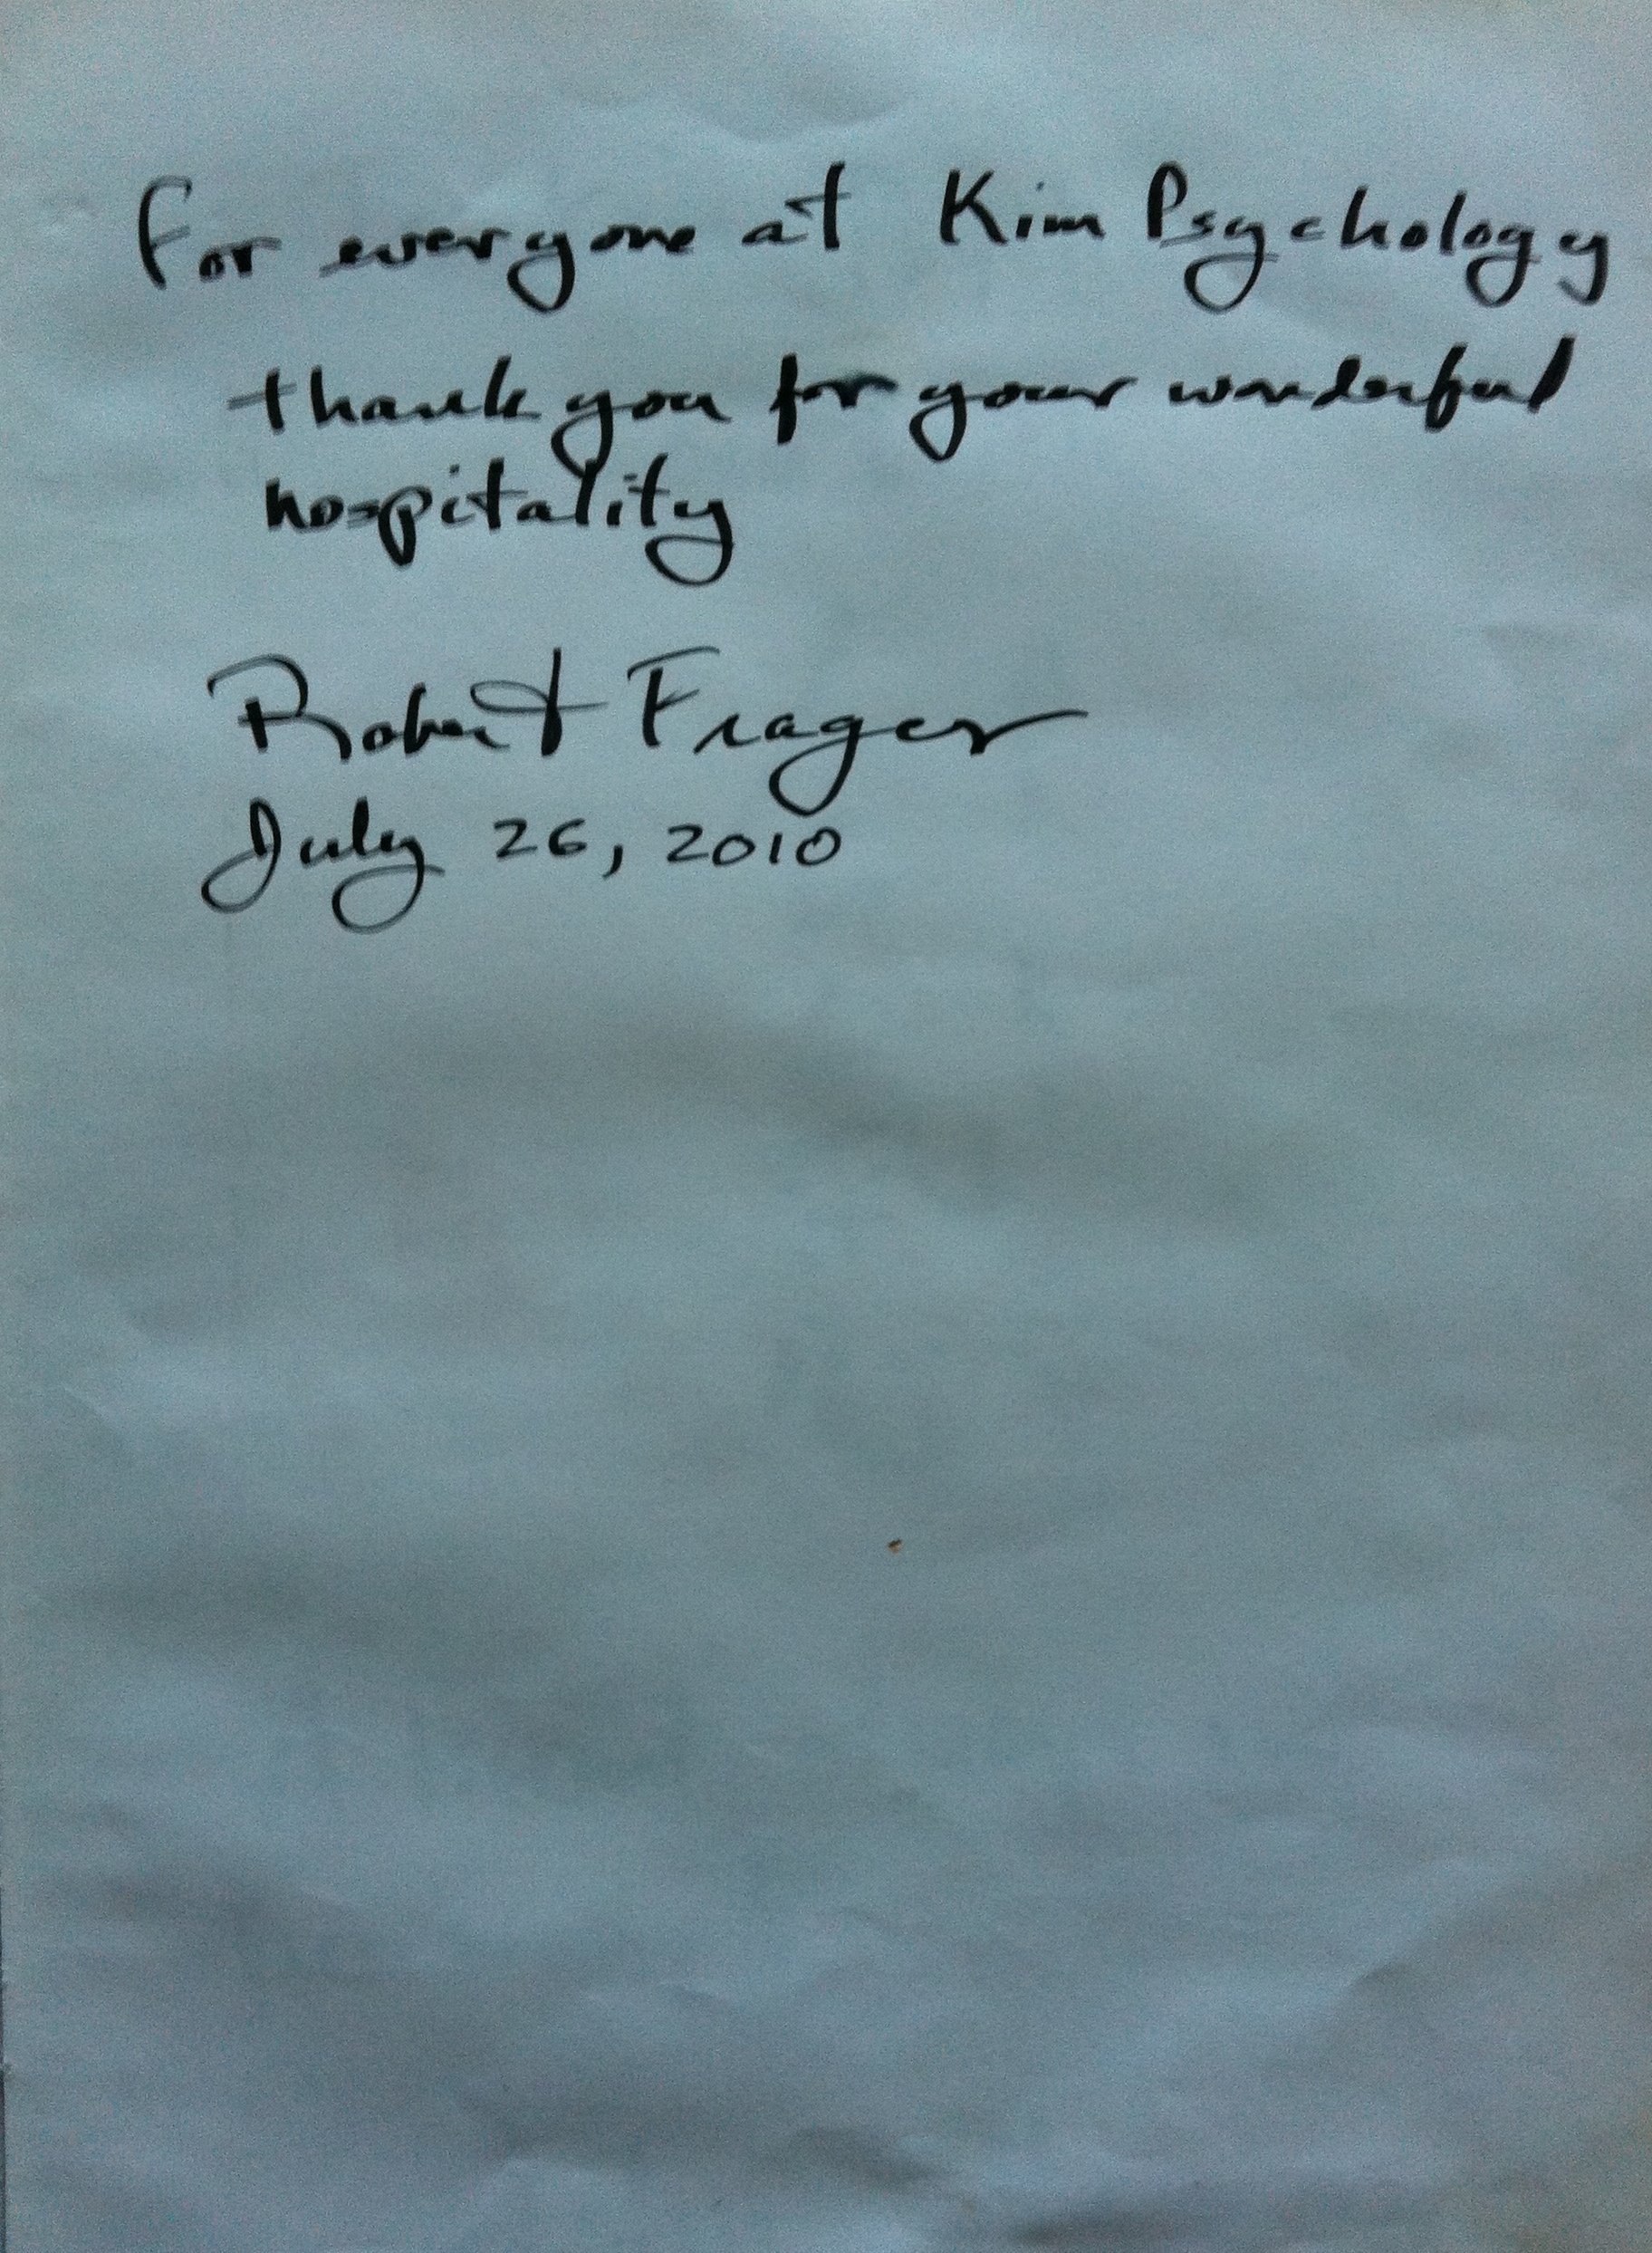 For everyone at Kim Psychology
thank you for your wonderful
hospitality
Robert Frager
July 26, 2010